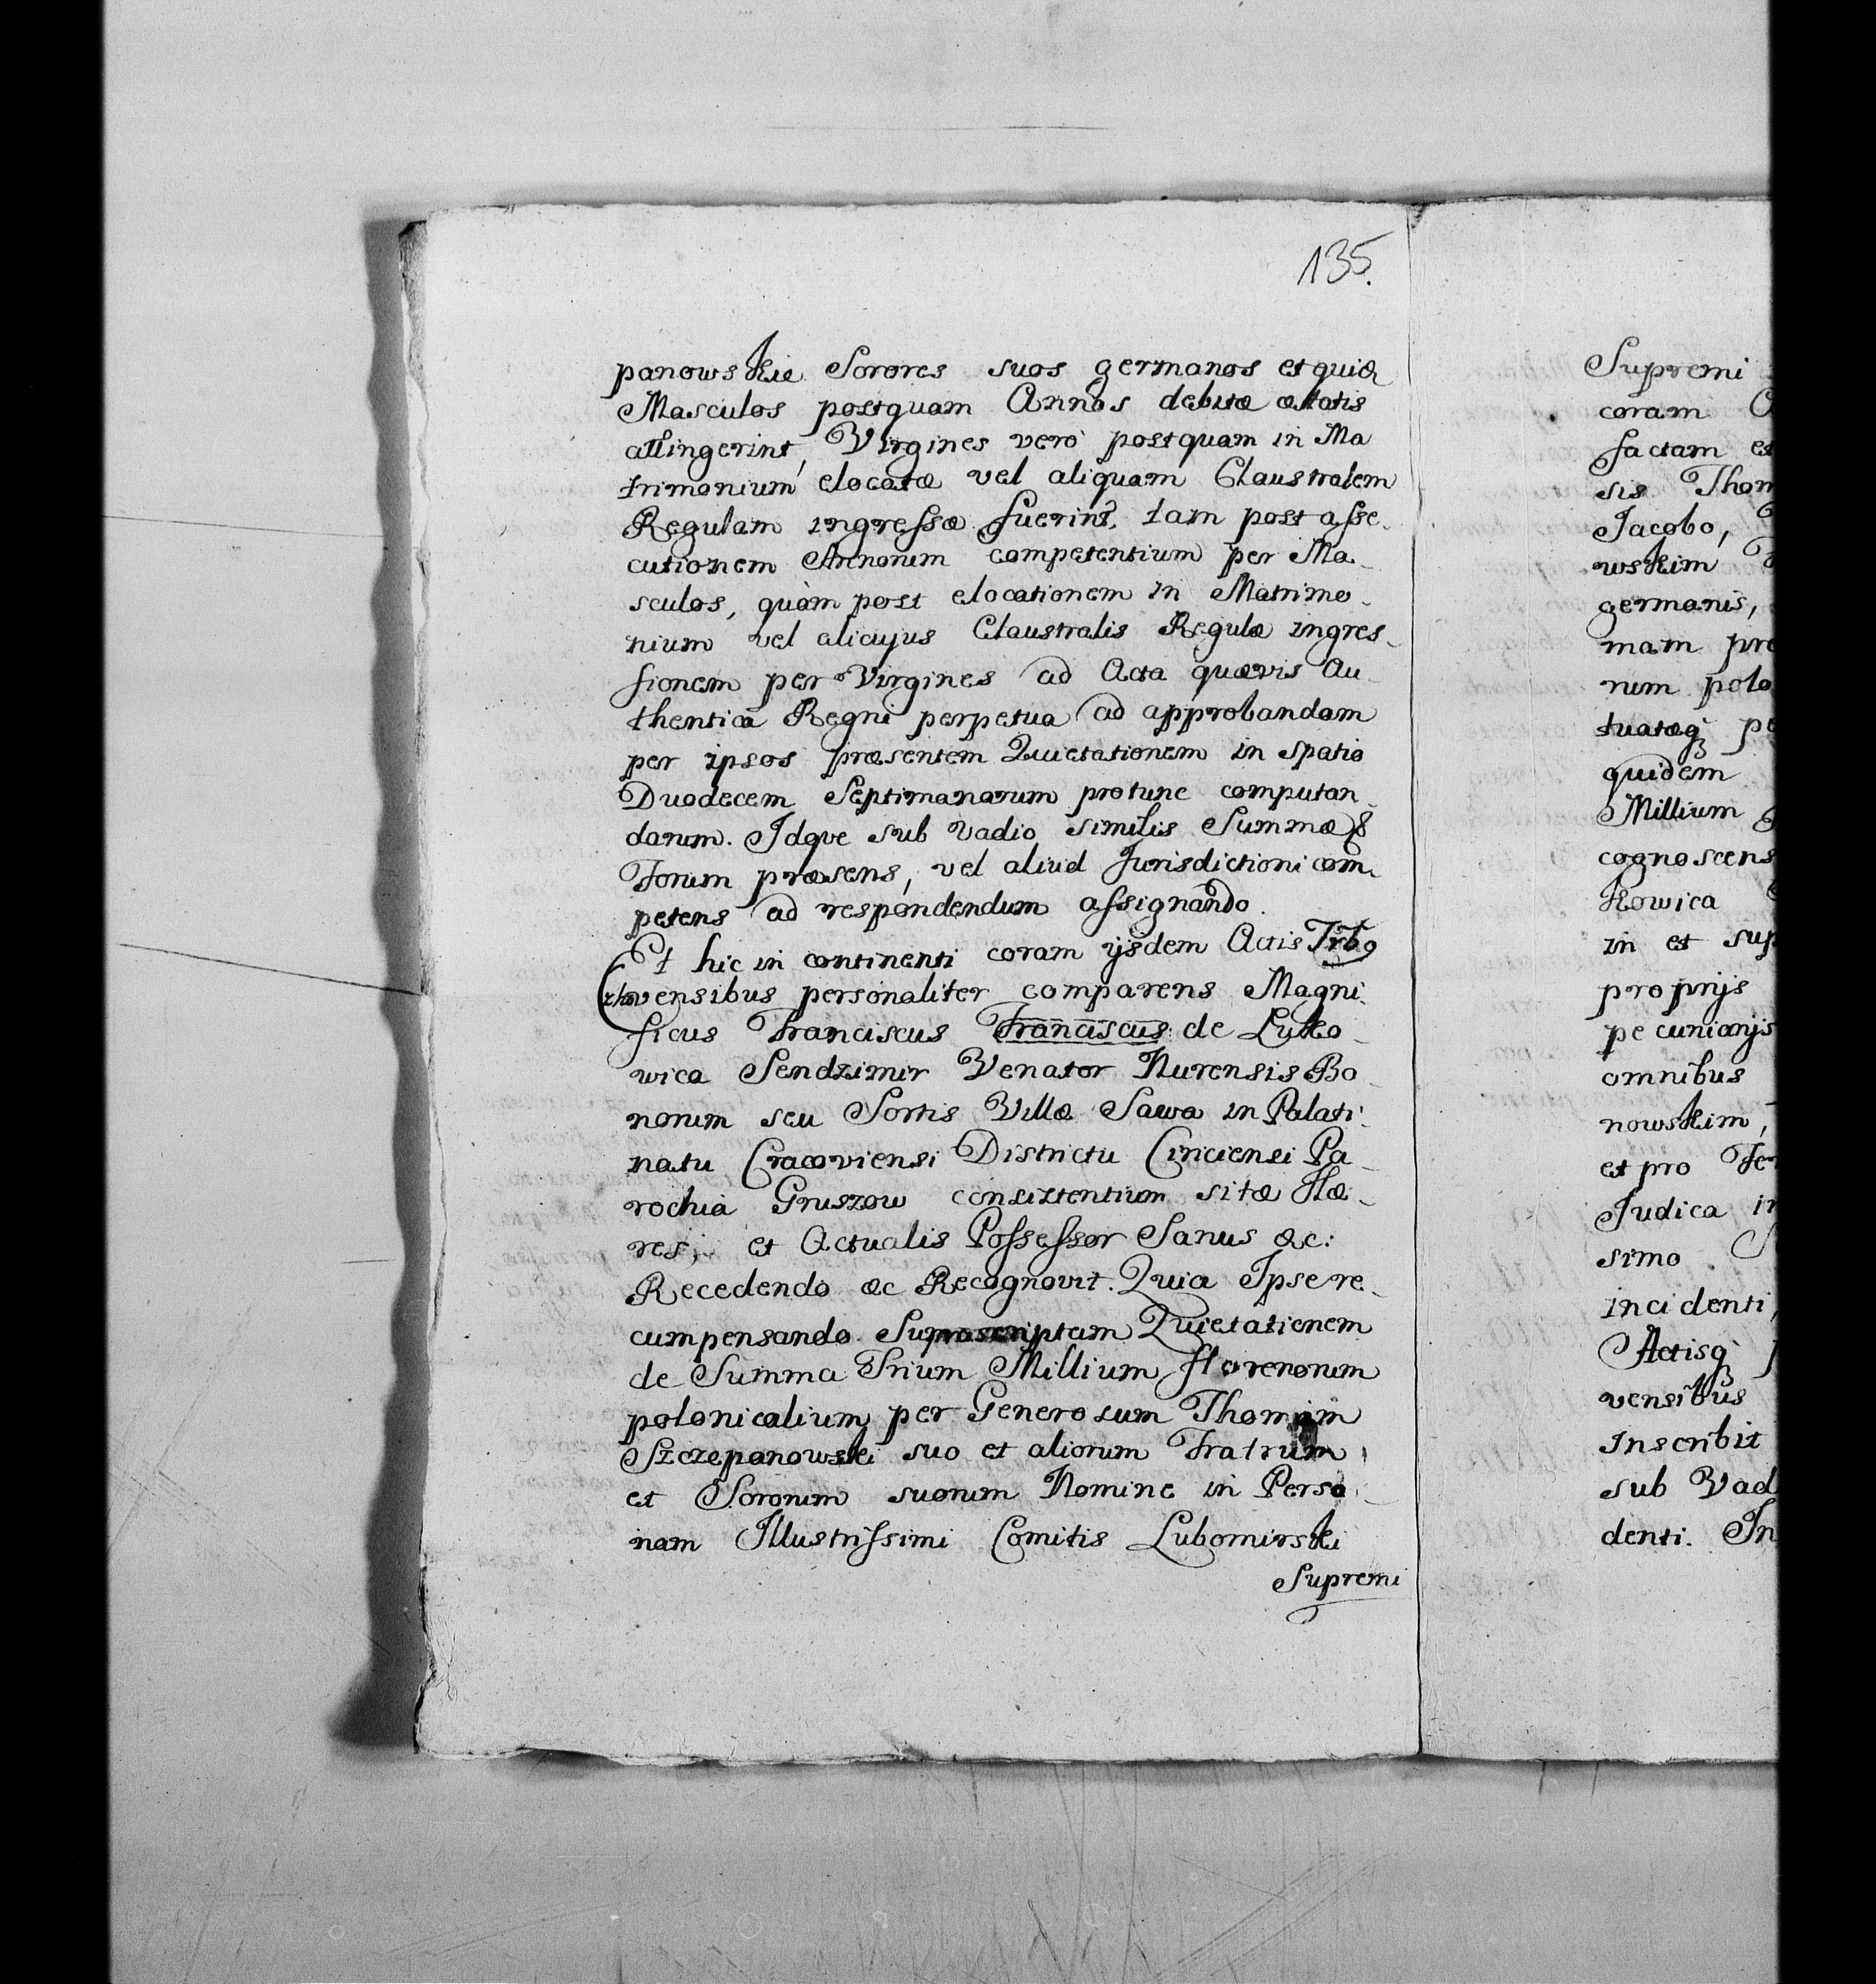 135.
panowskie Sorores suos germanos et quidē
Masculos postquam Annos debitæ ætatis
attingerint, Virgines verò postquam in Ma
trimonium elocatæ vel aliquam Claustralem
Regulam ingressæ fuerint, tam post asse-
cutionem Annorum competentium per Ma-
sculos, quàm post elocationem in Matrimo-
nium vel alicujus Claustralis Regulæ ingres-
sionem per Virgines ad Acta quævis Au-
thentica Regni perpetua ad approbandam
per ipsos præsentem Quietationem in spatio
Duodecem Septimanarum protunc computan-
darum. Idqve sub vadio similis Summæ &
Forum præsens, vel aliud Jurisdictioni com-
petens ad respondendum assignando.
Et hic in continenti coram ijsdem Actis Trb
vensibus personaliter comparens Magni-
ficus Franciscus Franciscus de Lyko-
wica Sendzimir Venator Nurensis Bo-
norum seu Sortis Villæ Sawa in Palati-
natu Cracoviensi Districtu Ciriciensi Pa-
rochia Gruszow consistentium sitæ Hæ-
res, et Actualis Possessor Sanus &c:
Recedendo &c Recognovit. Quia Ipse re-
cumpensando Suprascriptam Quietationem
de Summa Trium Millium florenorum
polonicalium per Generosum Thomam
Szczepanowski suo et aliorum Fratrum
et Sororum suorum Nomine in Perso-
nam Illustrissimi Comitis Lubomirski
Supremi
Supremi
coram
factam et
sis Thom
Jacobo,
wskim
germanis,
mam pre
rum polo
tuatæq pe
quidem
Millium
cognoscens
Kowica
in et sup
proprijs
pecuniarijs
omnibus
nowskim,
et pro Ter
Judica in
simo
incidenti,
Actisq
vensibus
Inscribit
sub Vad
denti. In